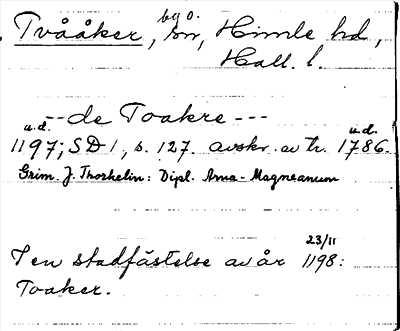 Tvååker, by o. sn, Himle hd,
Hall. l.
-- de Toakre ---
u.d. u.d.
1197; SD 1, s. 127. avskr. av tr. 1786.
Grim. J. Thorkelin: Dipl. Arna-Magneanum
23/11
I en stadfästelse av år 1198:
Toaker.